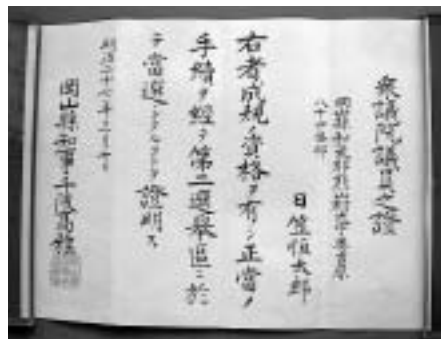 衆議院議員之證
岡山縣
日笠恒太郎
右者成規ノ資格ヲ有シ正當ノ
手續ヲ經テ第二選擧區ニ於
テ當選シタルコトヲ證明ス
明治二十七年三月
岡山縣知事千阪高雅